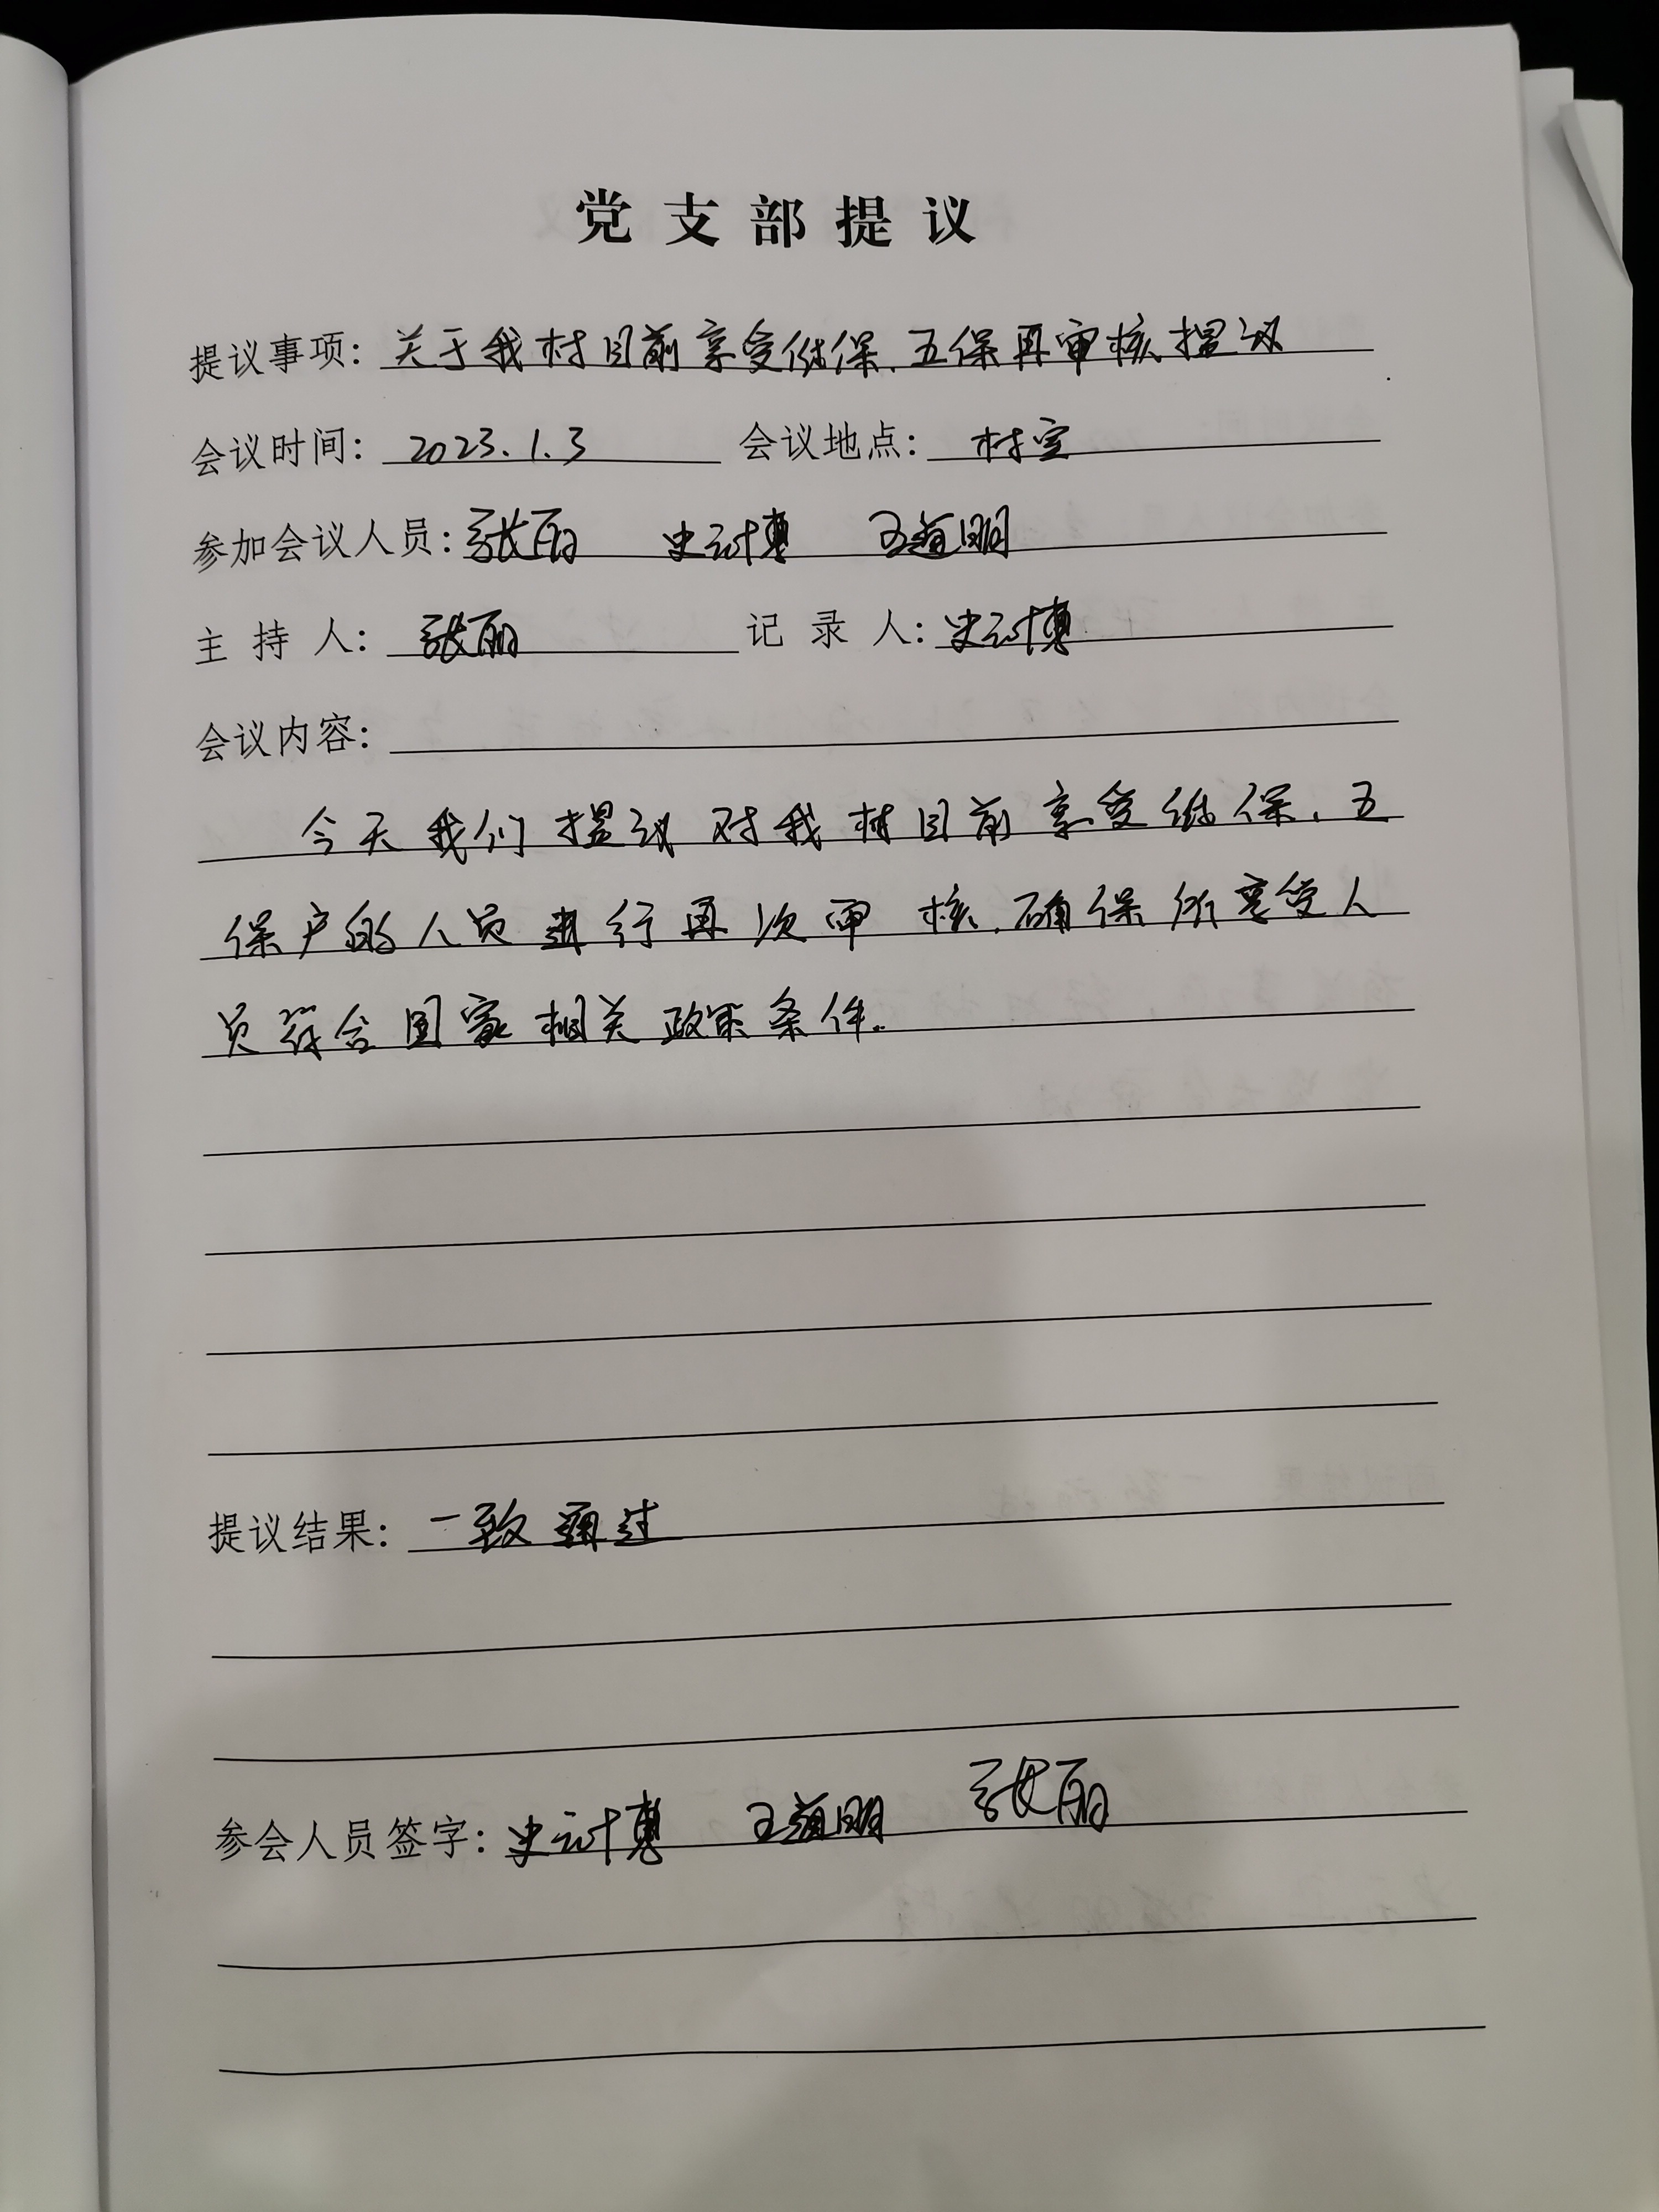 党支部提议
提议事项：关于我村目前享受低保、五保再审核提议
会议时间：2023.1.3 会议地点：村室
参加会议人员：张丽 史 博 王道明
主持人：张丽 记录人：史 博
会议内容：
今天我们提议对我村目前享受低保、五
保户的人员进行再次审核，确保所享受人
员符合国家相关政策条件。
提议结果：一致通过
参会人员签字：史 博 王道明 张丽